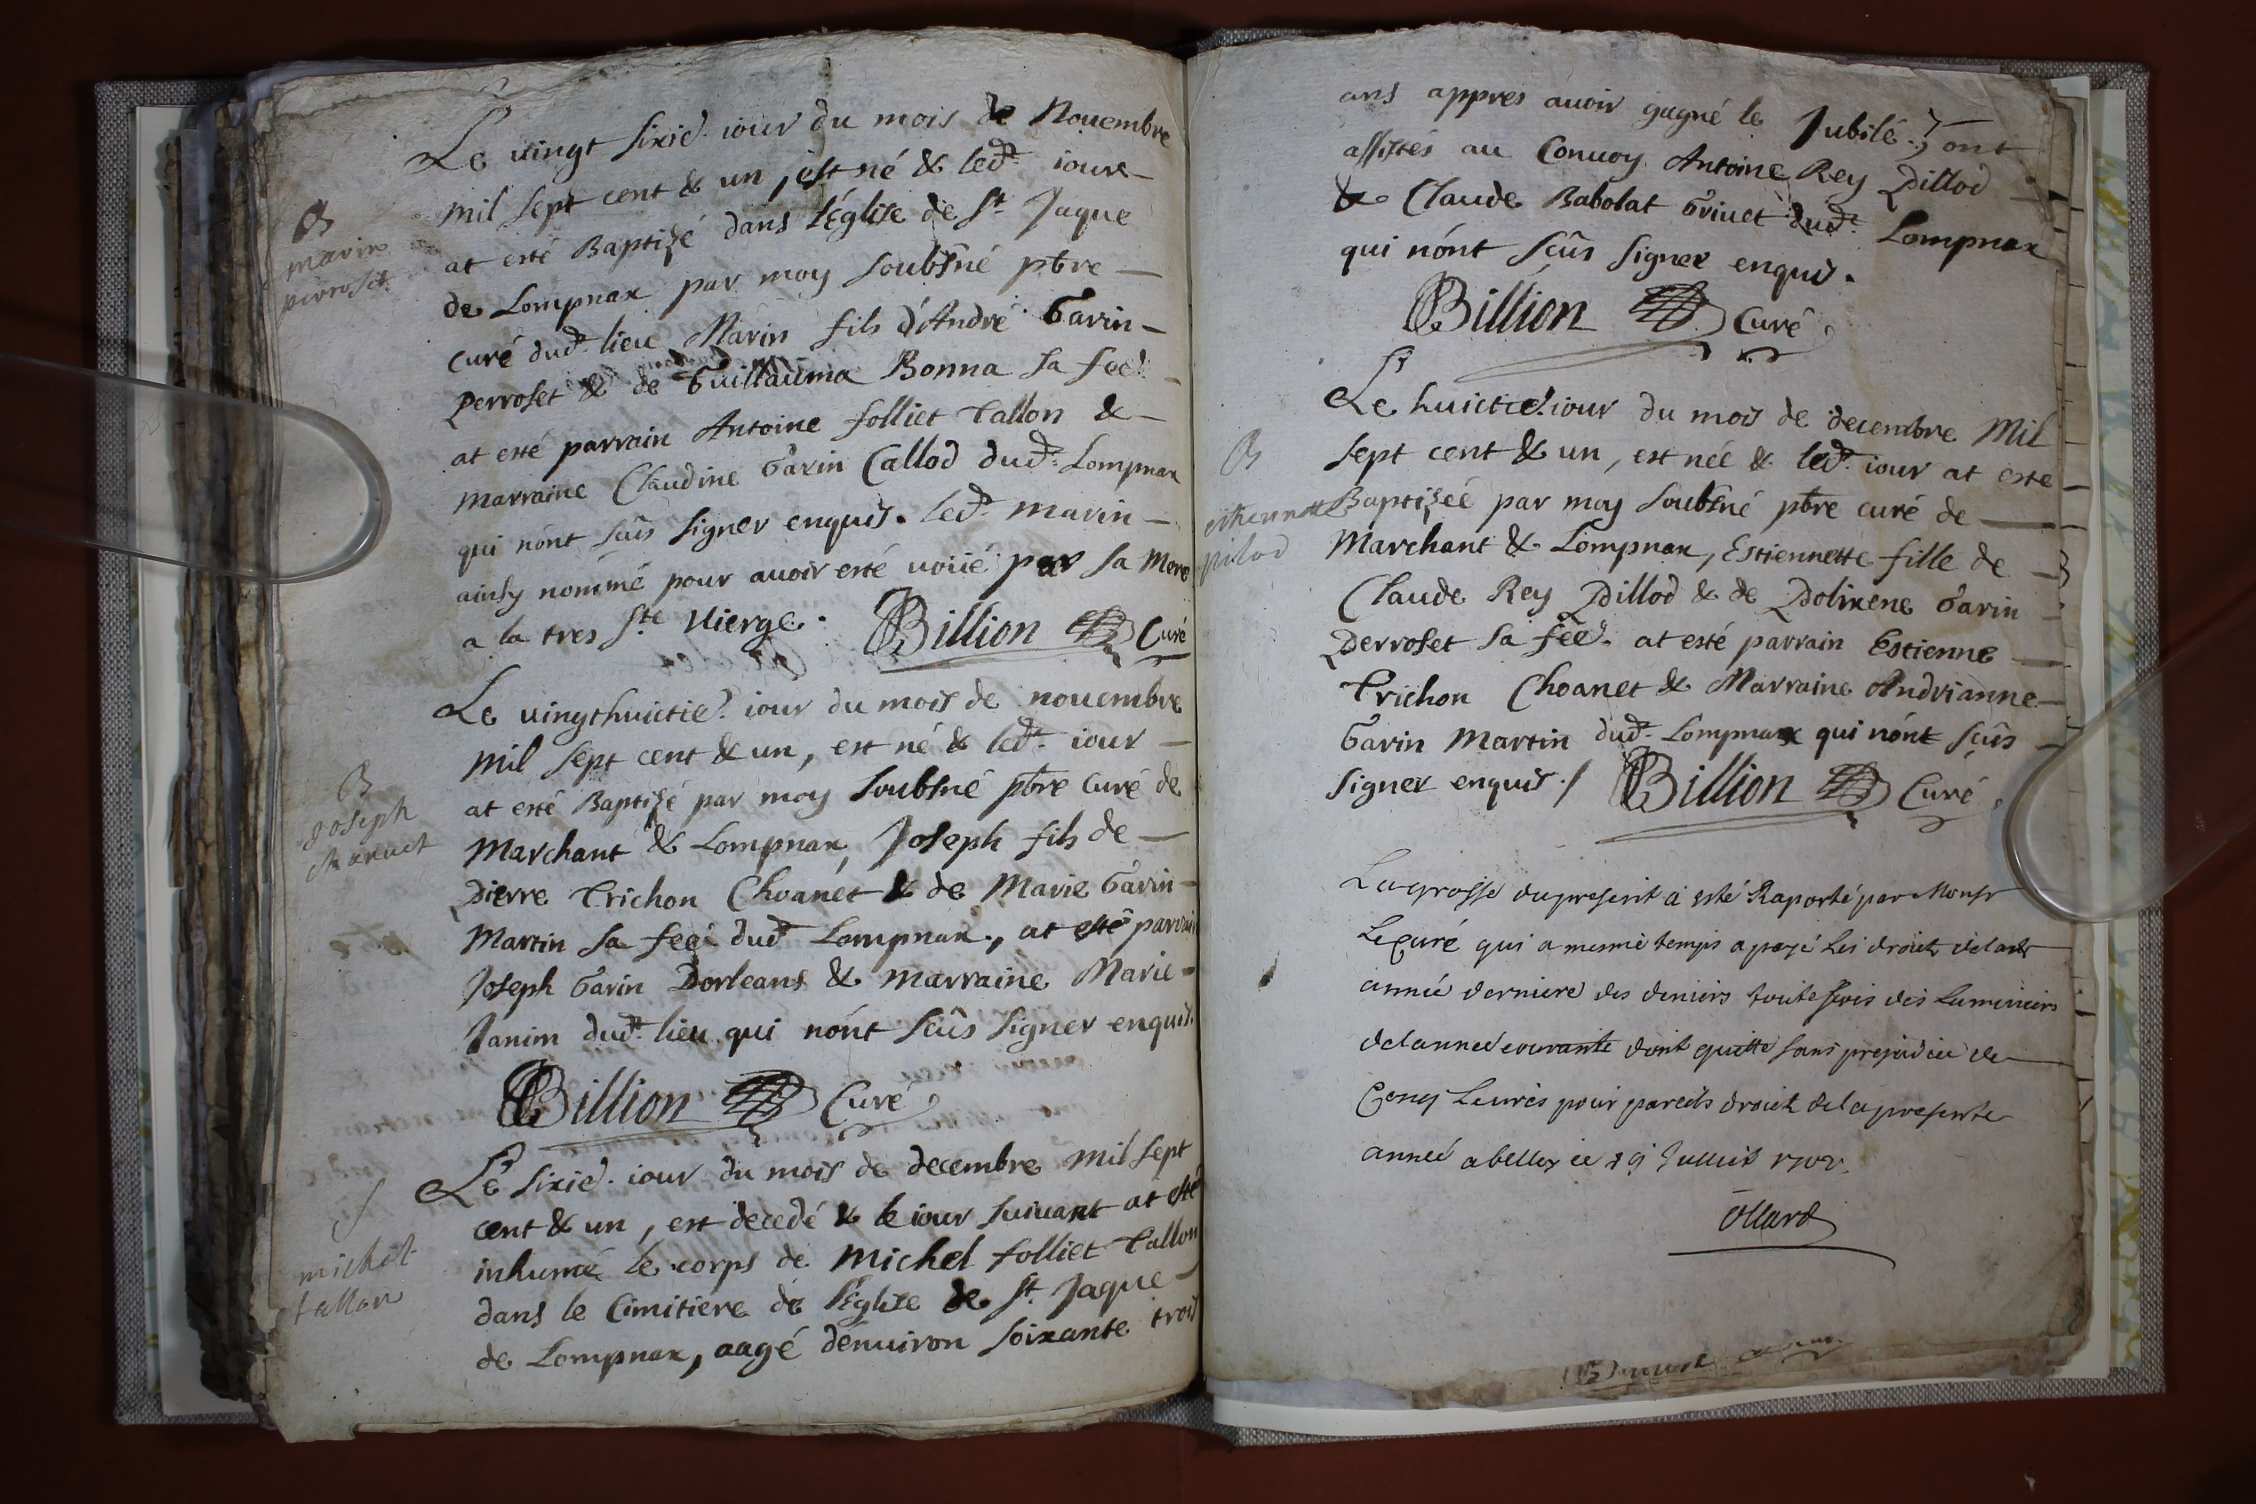 Le vingt sixie. iour du mois de Nouembre
mil sept cent & un, est né & led. iour
at esté Baptizé dans l'Église de St Jaque
de Lompnax par moy soubsné pbre
curé dud. lieu Marin fils d'André Garin
perroset & de Guillauma Bonna sa feé
at esté parrain Antoine folliet Tallon &
marraine Claudine Garin Callod dud. Lompnax
qui nónt sçûs signer enquis. led. marin
ainsy nommé pour auoir esté voüé par sa Mere
a la tres Ste Vierge. Billion Curé
B
marin
perroset
Le vingthuictie. iour du mois de nouembre
mil sept cent & un, est né & led. iour
at esté Baptizé par moy soubsné pbre Curé de
Marchant & Lompnax, Joseph fils de
Pierre Trichon Choanet & de Marie Garin
Martin sa feé dud. Lompnax, at esté parrain
Joseph Garin Dorleans & marraine Marie
Janin dud. lieu qui nónt sçûs signer enquis.
Billion Curé
B
Joseph
choanet
Le sixie. iour du mois de decembre mil sept
cent & un, est decedé & le iour suiuant at esté
inhumé le corps de Michel folliet Tallon
dans le Cimitiere de l'Église de St. Jaque
de Lompnax, aagé dénuiron soixante trois
S
michel
tallon
ans appres auoir gagné le Jubilé; ont
assistés au Conuoy Antoine Rey Pillod
& Claude Babolat Griuet dud. Lompnax
qui nónt sçûs signer enquis.
Billion Curé
Le huictie. iour du mois de decembre Mil
sept cent & un, est née & led. iour at esté
Baptizée par moy soubsné pbre curé de
Marchant & Lompnax, Estiennette fille de
Claude Rey Pillod & de Polixene Garin
Perroset sa feé. at esté parrain Estienne
Trichon Choanet & Marraine Andrianne
Garin Martin dud. Lompnax qui nónt sçûs
signer enquis./ Billion Curé
B
etiennette
pilod
La grosse du present a esté Raporté par Monsr
Le Curé qui a mesme temps a payé les droits de lad
année derniere des deniers toutefois des Luminiers
de lannée courante dont quitte sans prejudice de
Cenq Leures pour pareils droits de la presente
année a belley ce 29 Juillet 1702.
Ollard